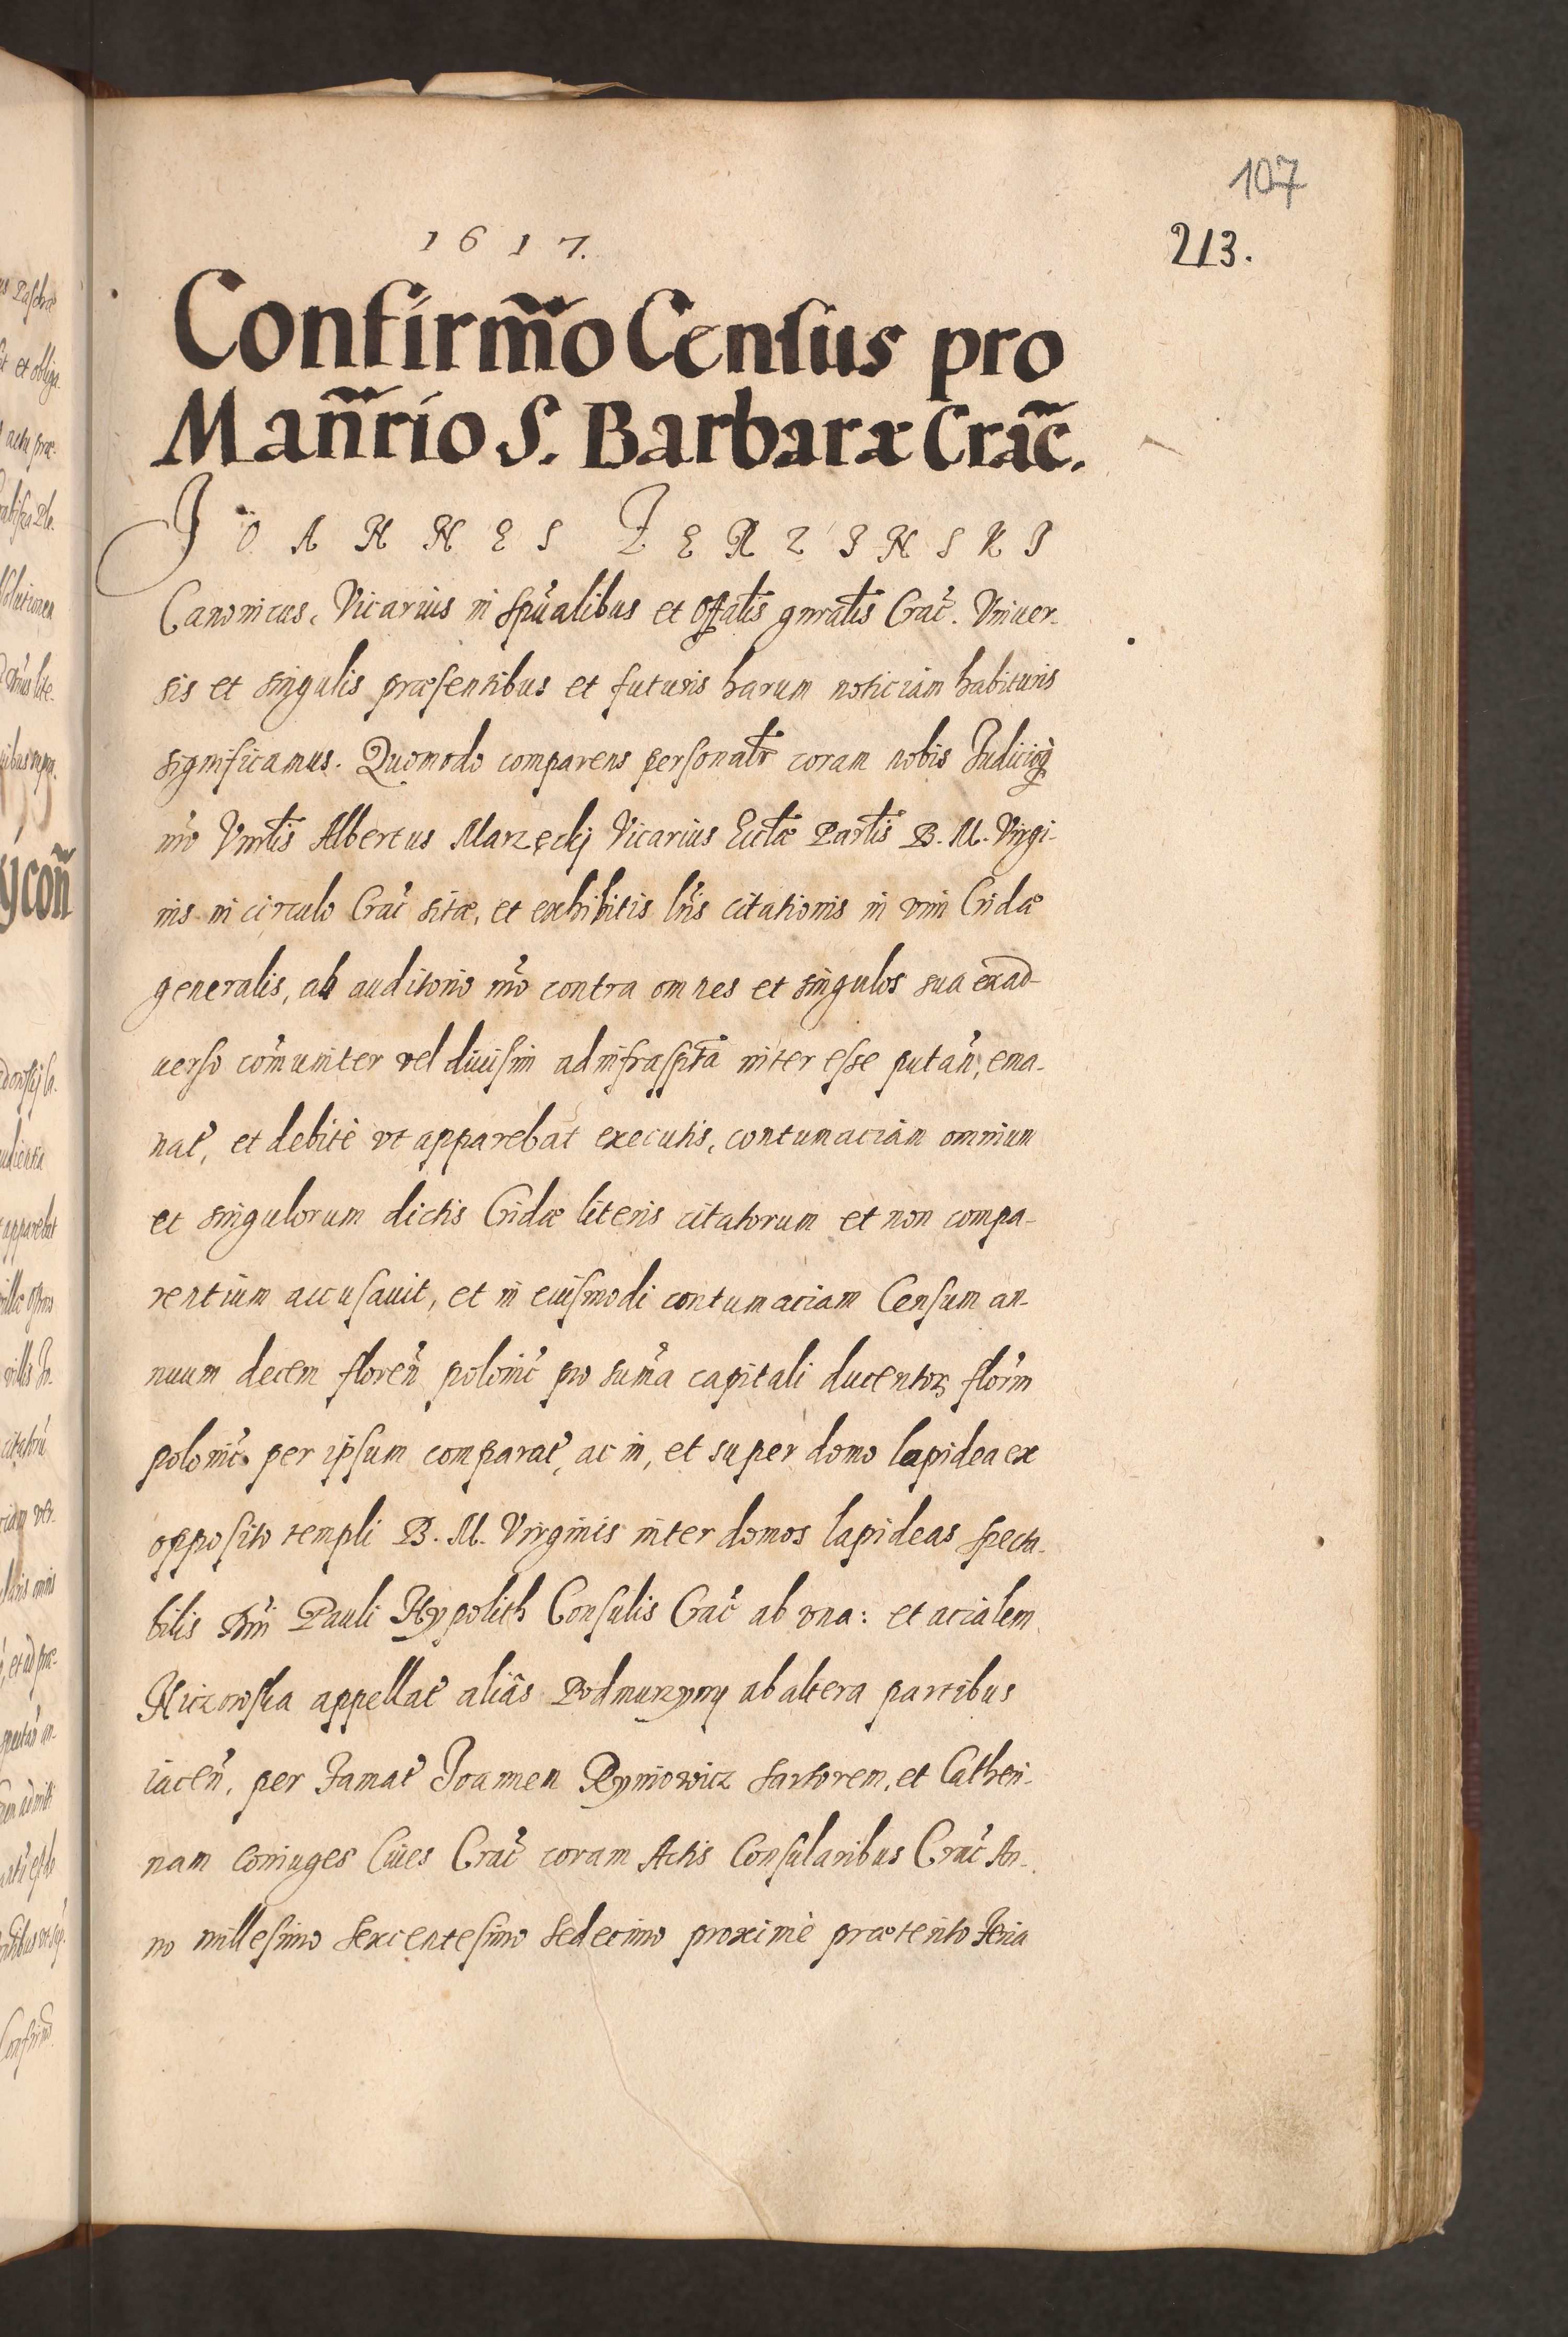 107
213.
1617.
Confirmo Censius pro
Manrio S. Barbaræ Crac.
JOANNES FERZINSKI
Canonicus, Vicarius in spualibus et Offalis gnralis Crac. Vniuer-
sis et singulis præsentibus et futuris harum noticiam habituris
significamus. Quomodo comparens personalr coram nobis Judicioq
nro Vnrlis Albertus Marzęckj Vicarius Eccłæ Partis B. M. Virgi-
nis in circulo Crac sitæ, et exhibitis lris citationis in vim Cridæ
generalis, ab auditorio nro contra omnes et singulos sua ex ad-
uerso comuniter vel diuisim ad infrascpta inter esse putan, ema-
nat, et debitè vt apparebat executis, contumaciam omnium
et singulorum dictis Cridæ literis citatorum et non compa-
rentium accusauit, et in eiusmodi contumaciam Censum an-
nuum decem floren polonic pro suma capitali ducentor florin
polonic. per ipsum comparat, ac in, et super domo lapidea ex
opposito templi B. M. Virginis inter domos lapideas specta-
bilis Dni Pauli Hypolith Consulis Crac ab vna: et acialem
Hiczowska appellat aliâs Podmurzyny ab altera partibus
iacen, per Famat Joannen Ryniowicz sartorem, et Catheri-
nam coniuges Ciues Crac coram Actis Consularibus Crac An-
no millesimo sexcentesimo sedecimo proximè præterito Feria